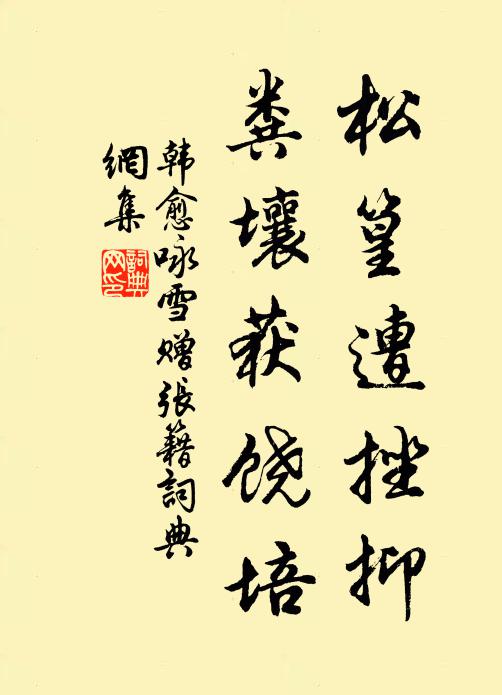 松篁遭挫抑
粪壤获饶培
韩愈咏雪赠張籍詞典
網集
詞典
网印